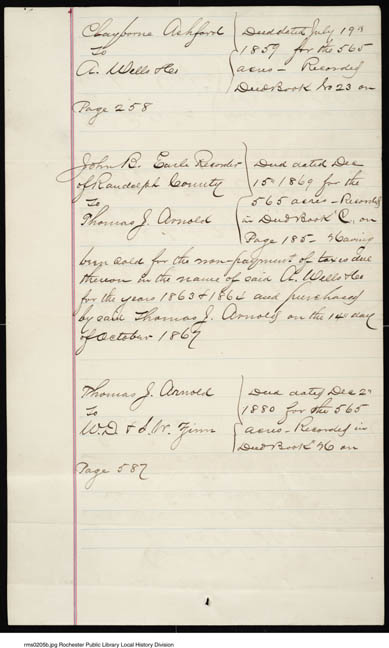 Clayborne Ashford { Deed dated July 19th
To { 1859 for the 565
A. Wells & Co { acres - Recorded
{ Deed Book No 23 on
Page 258
John B. Earle Recorder { Deed dated Dec
of Randolph County { 15th 1869 for the
To { 565 acres - Recorded
Thomas J. Arnold { in Deed Book C, on
{ Page 185 - Having
been sold for the non-payment of taxes due
thereon in the name of said A. Wells & Co
for the years 1863 & 1864 and purchased
by said Thomas J. Arnold on the 14th day
of October 1867
Thomas J. Arnold { Deed dated Dec 2nd
To { 1880 for the 565
W.D. & J.W. Zinn { acres - Recorded in
{ Deed Book H on
Page 587
rms0205b.jpg Rochester Public Library Local History Division